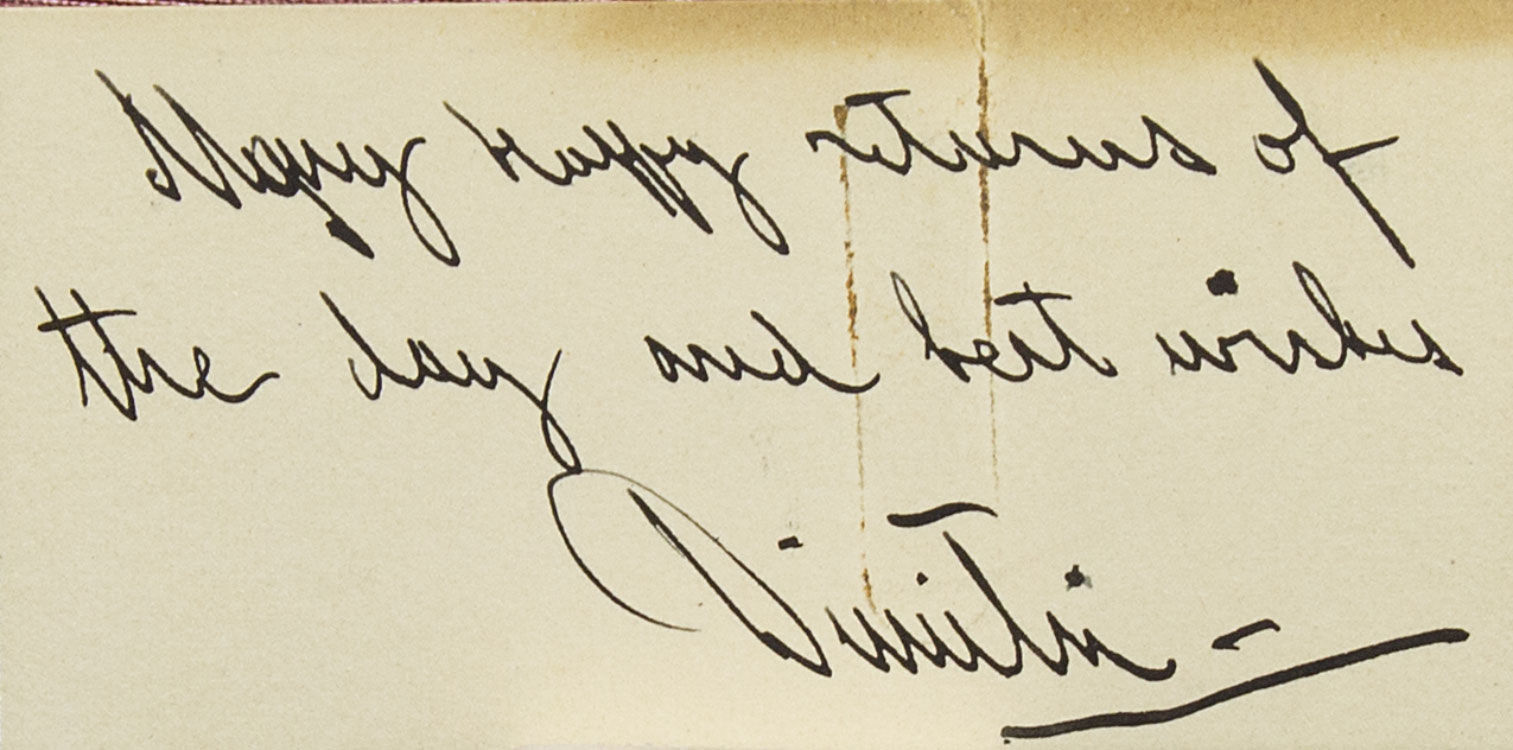 Many happy returns of
the day and best wishes
Dimitri -